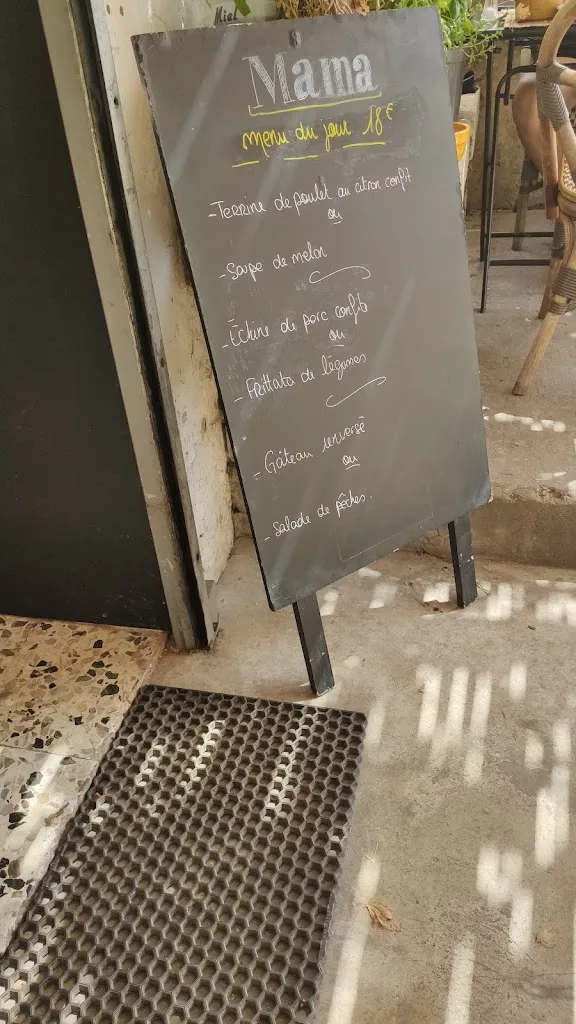 Miel
Mama
menu du jour 18€
- Terrine de poulet au citron confit
ou
- Soupe de melon
- Échine de porc confite
ou
- Frittata de légumes
- Gâteau renversé
ou
- Salade de pêches.